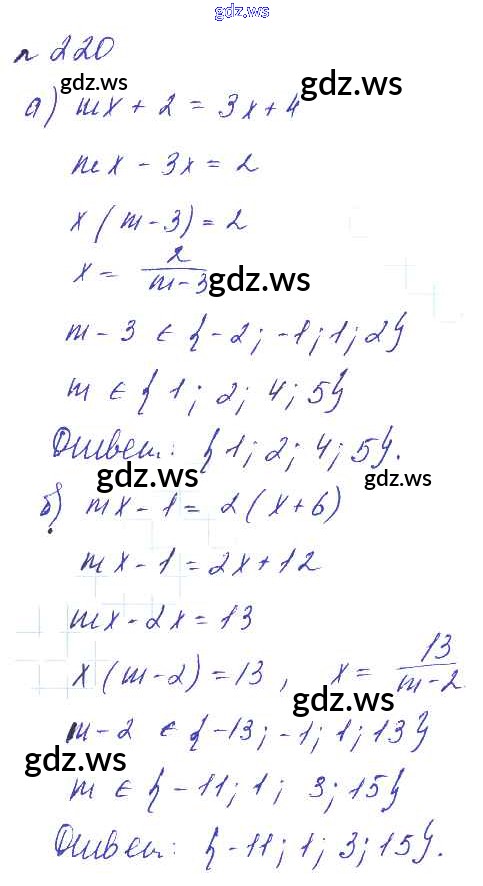 gdz.ws
№ 220
gdz.ws
gdz.ws
а) mx + 2 = 3x + 4
mx - 3x = 2
x (m - 3) = 2
x = 2/(m - 3)
gdz.ws
m - 3 ∈ {-2; -1; 1; 2}
m ∈ {1; 2; 4; 5}
Ответ: {1; 2; 4; 5}.
gdz.ws
gdz.ws
б) mx - 1 = 2(x + 6)
mx - 1 = 2x + 12
mx - 2x = 13
x (m - 2) = 13, x = 13/(m - 2)
gdz.ws
m - 2 ∈ {-13; -1; 1; 13}
gdz.ws
m ∈ {-11; 1; 3; 15}
Ответ: {-11; 1; 3; 15}.